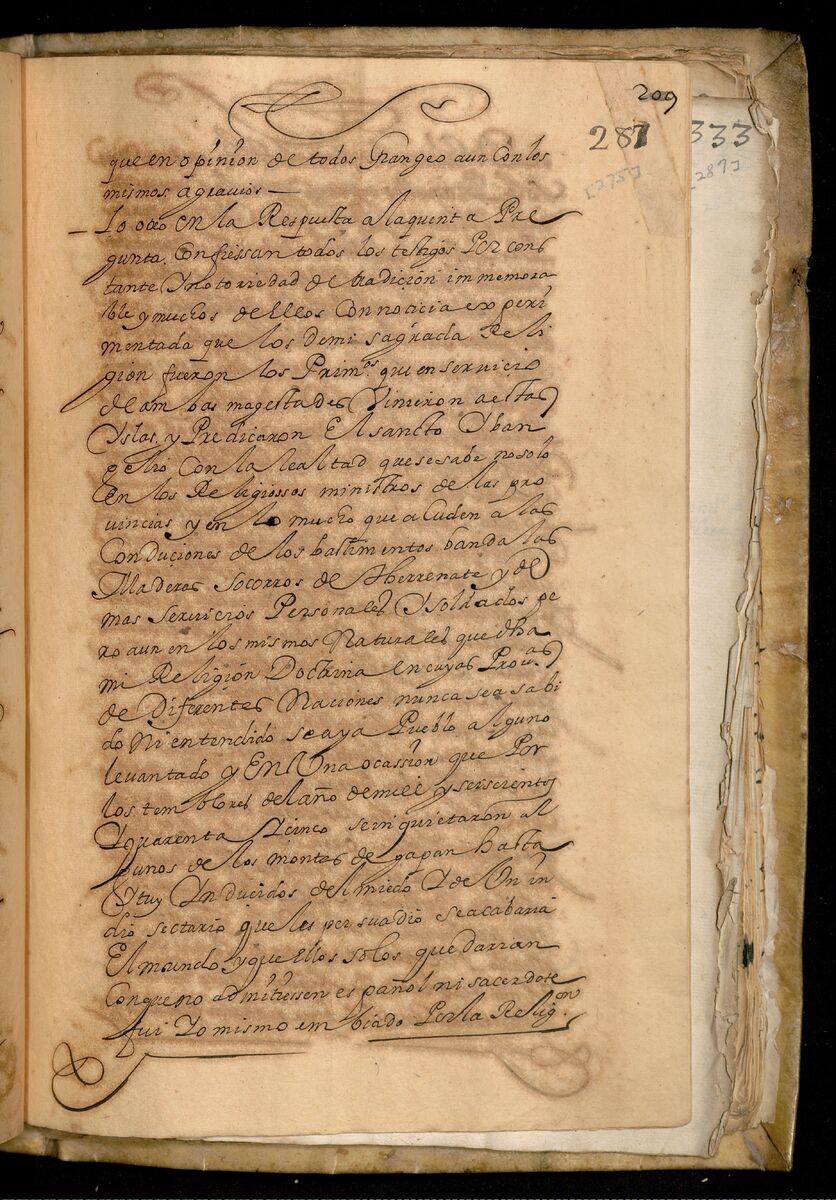 209
287
333
[275]
[287]
que en opinion de todos Grangeo aun Con los
mismos agravios —
— Lo otro en la Respuesta a la quinta Pre
gunta. Confiessan todos los testigos Por cons
tante Y notoriedad de tradición immemora
ble y muchos de ellos Con noticia experi
mentada que los de mi sagrada Reli
gion fueron los Primos que en servicio
de ambas magestades Vinieron a estas
Yslas, y Predicaron El sancto Yban
gelio Con la lealtad que se sabe no solo
En los Religiossos ministros de las pro
vincias y en lo mucho que acuden a las
Conduciones de los bastimentos banda las
Maderas Socorros de therrenate y de
mas servicios Personales Y soldados pe
ro aun en los mismos Naturales que dha
mi Religión Doctrina en cuyas Provas
de Diferentes Naciones nunca sea sabi
do Ni entendido se aya Pueblo alguno
levantado y En Una ocassion que Por
los temblores del año de mill y seiscientos
Y quarenta Y cinco se inquietaron al
gunos de los montes de gapan hasta
Ytuy Ynducidos del miedo Y de Un in
dio sectario que les persuadio se acabaria
El mundo y que Ellos solos quedarian
Con que no admitiessen español ni sacerdote
fui Yo mismo embiado Por la Religon.